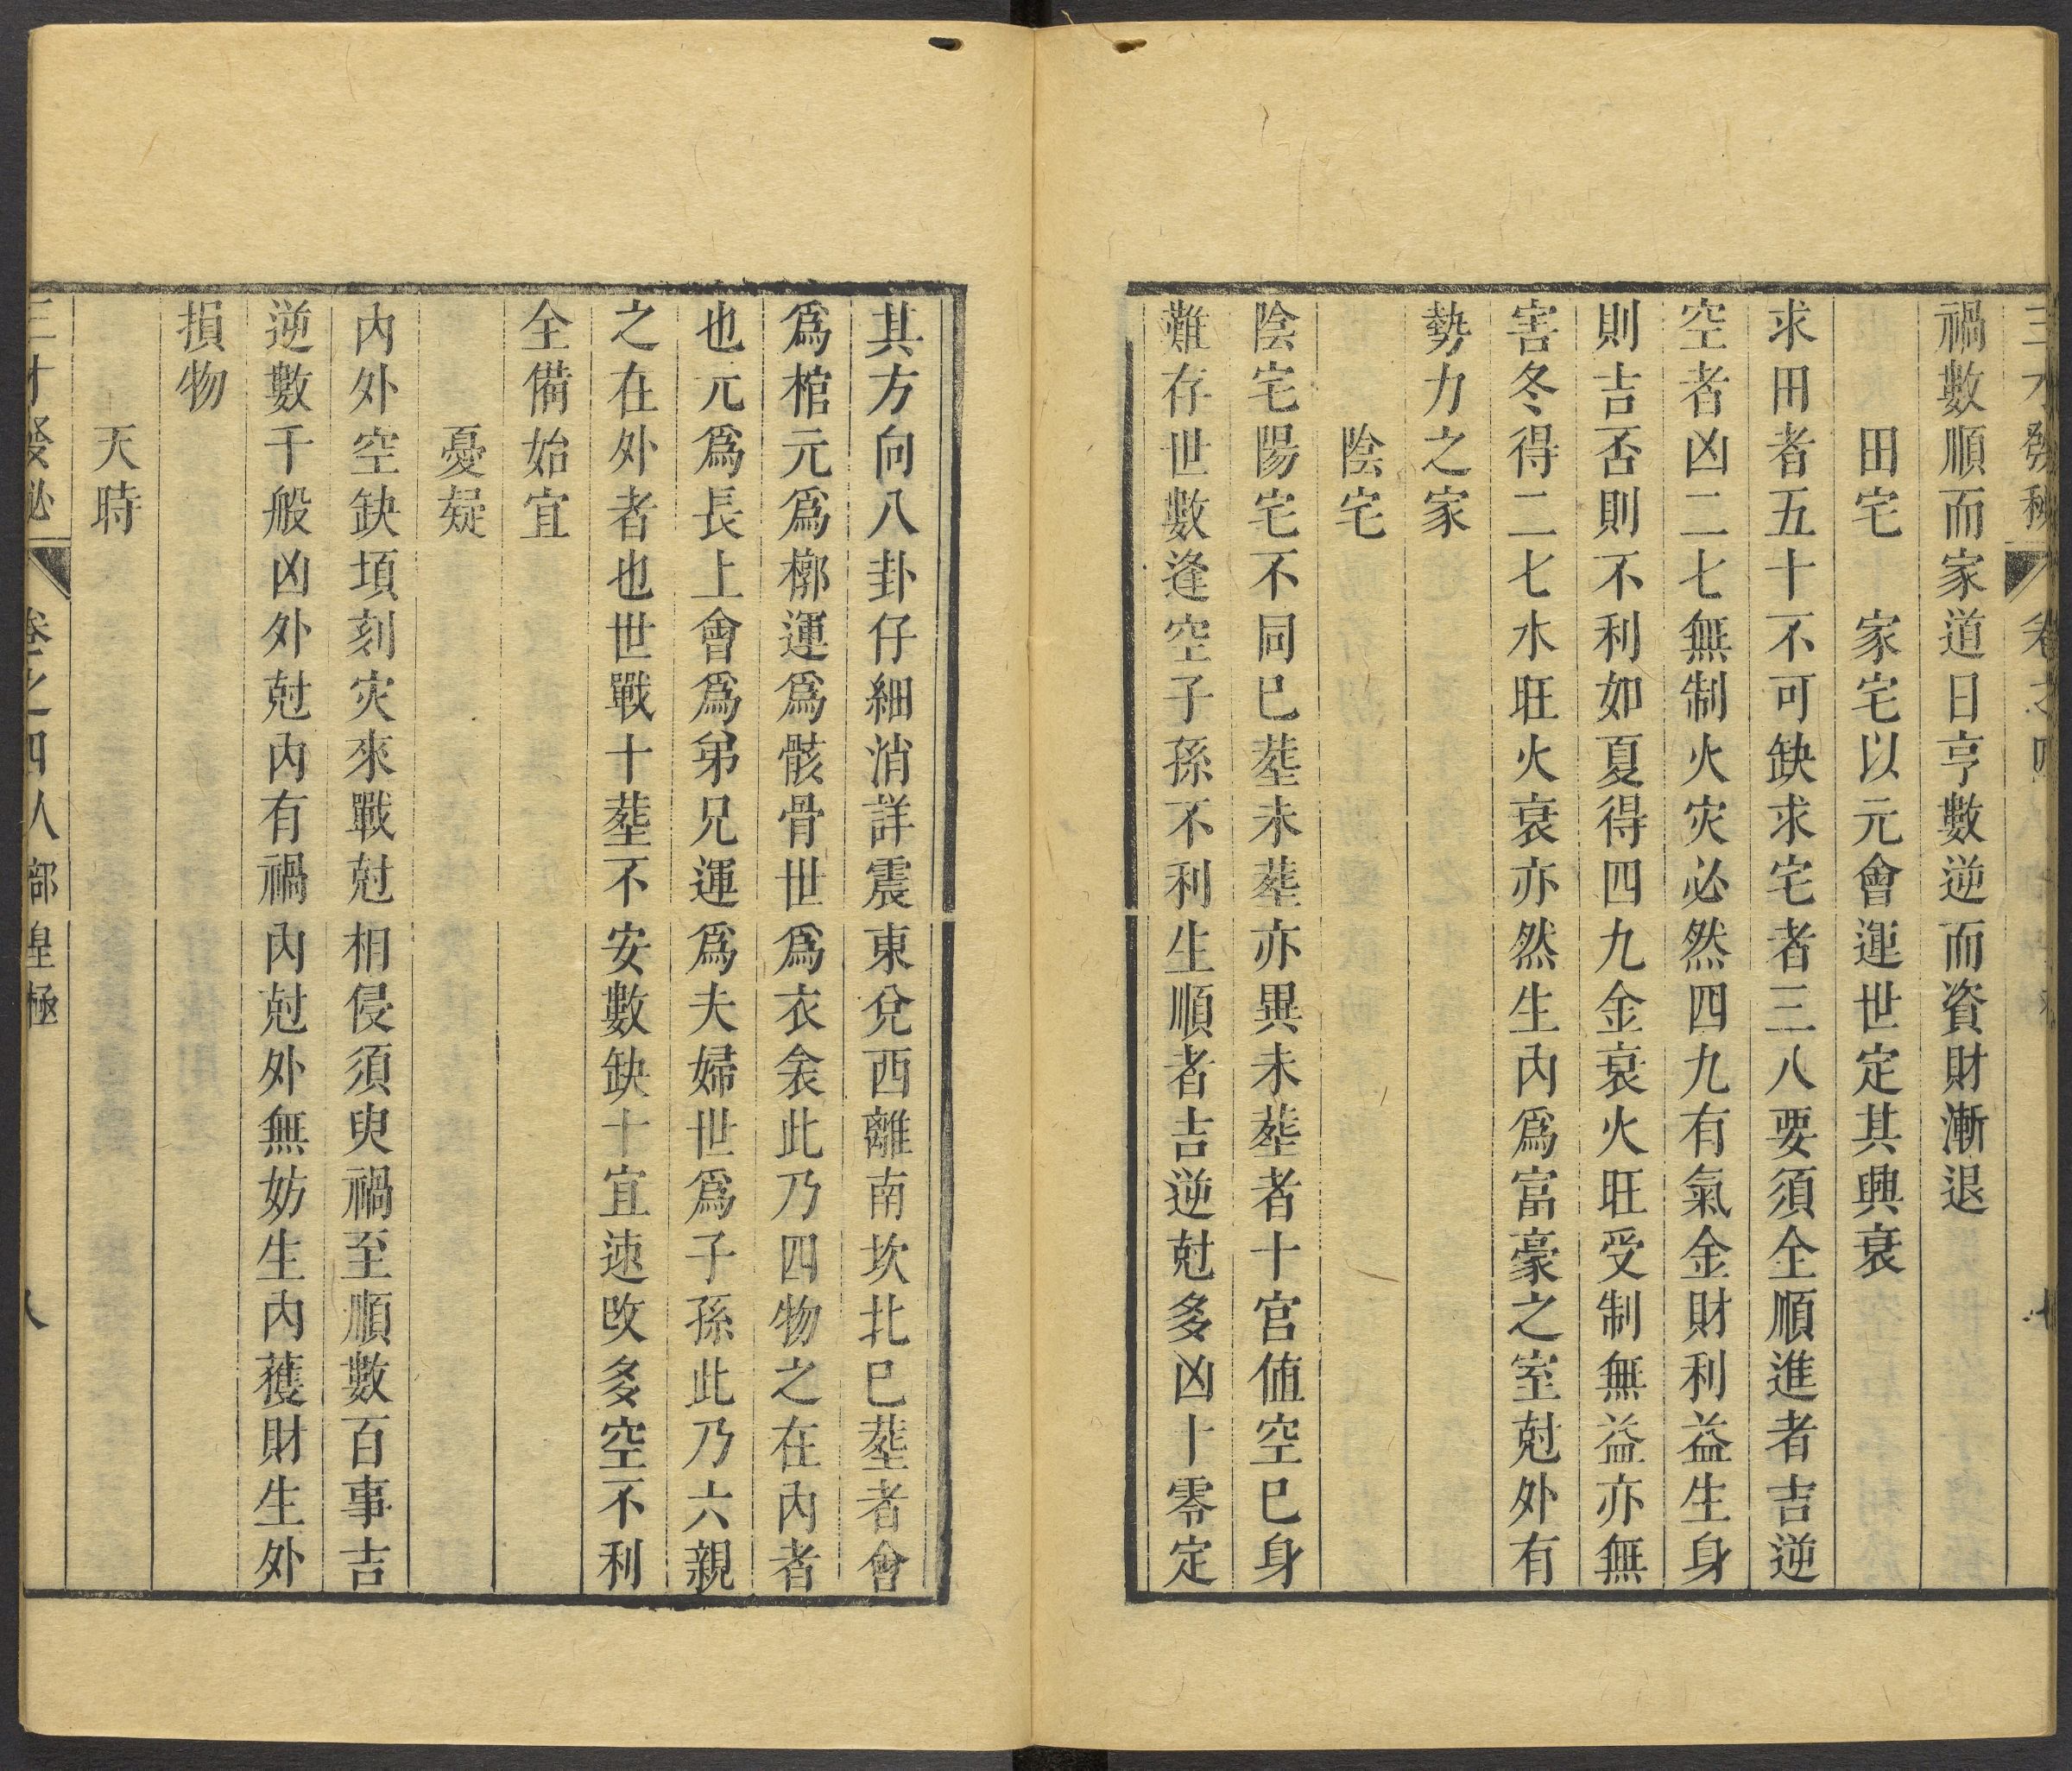 三才發秘 卷之四 七
禍數順而家道日亨數逆而資財漸退
田宅 家宅以元會運世定其興衰
求田者五十不可缺求宅者三八要須全順進者吉逆
空者凶二七無制火灾必然四九有氣金財利益生身
則吉否則不利如夏得四九金衰火旺受制無益亦無
害冬得二七水旺火衰亦然生內爲富豪之室尅外有
勢力之家
陰宅
陰宅陽宅不同已塟未塟亦異未塟者十官值空已身
難存世數逢空子孫不利生順者吉逆尅多凶十零定
其方向八卦仔細消詳震東兌西離南坎北已塟者會
爲棺元爲槨運爲骸骨世爲衣衾此乃四物之在內者
也元爲長上會爲弟兄運爲夫婦世爲子孫此乃六親
之在外者也世戰十塟不安數缺十宜速改多空不利
全備始宜
憂疑
內外空缺頃刻灾來戰尅相侵須臾禍至順數百事吉
逆數千般凶外尅內有禍內尅外無妨生內獲財生外
損物
天時
三才發秘 卷之四人部皇極 八